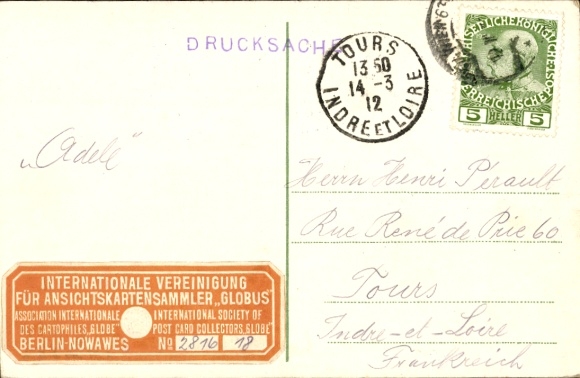 DRUCKSACHE
TOURS
13 50
14 - 3
12
INDRE ET LOIRE
5 HELLER 5
„Adele"
Herrn Henri Pérault
Rue René de Prie 60
Tours
Indre-et-Loire
Frankreich
INTERNATIONALE VEREINIGUNG
FÜR ANSICHTSKARTENSAMMLER „GLOBUS"
ASSOCIATION INTERNATIONALE
DES CARTOPHILES „GLOBE"
INTERNATIONAL SOCIETY OF
POST CARD COLLECTORS „GLOBE"
BERLIN-NOWAWES No 2816 18